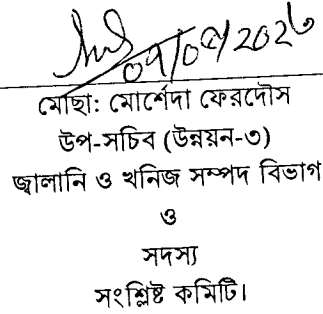 ০৭/০৫/2026
মোছা: মোর্শেদা ফেরদৌস
উপ-সচিব (উন্নয়ন-৩)
জ্বালানি ও খনিজ সম্পদ বিভাগ
ও
সদস্য
সংশ্লিষ্ট কমিটি।